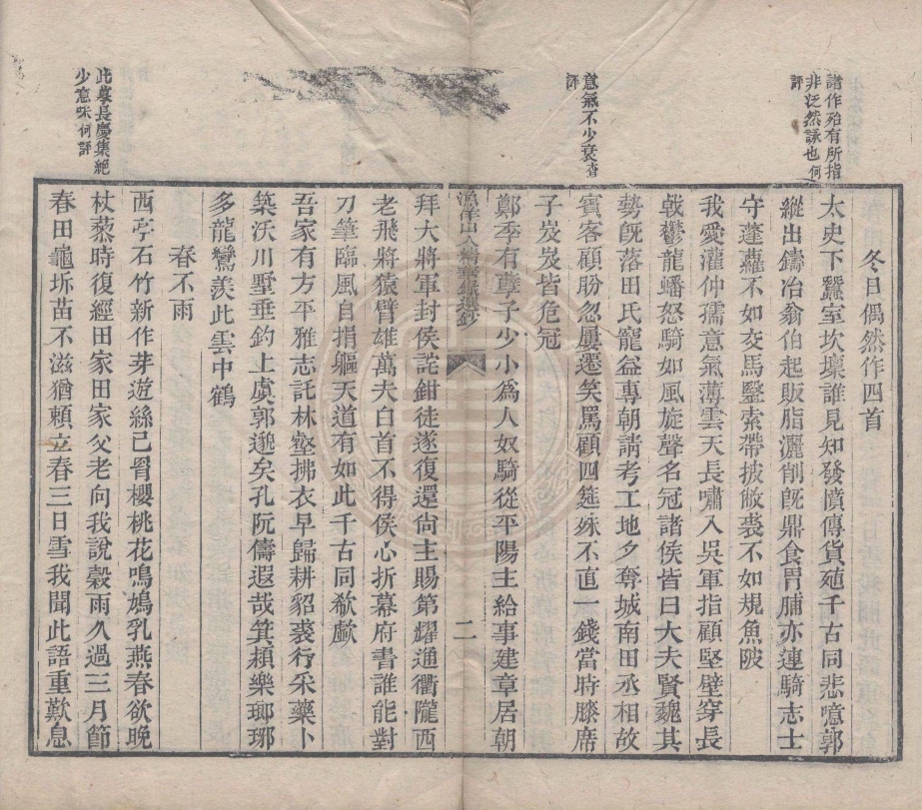 諸作殆有所指
非泛然詠也何
評
冬日偶然作四首
太史下蠶室坎壞誰見知發憤傳貨殖千古同悲噫郭
縱出鑄冶翁伯起販脂灑削旣鼎食胃脯亦連騎志士
守蓬蘽不如交馬醫索帶披敝裘不如規魚陂
我愛灌仲孺意氣薄雲天長嘯入吳軍指顧堅壁穿長
戟鬱龍蟠怒騎如風旋聲名冠諸侯皆曰大夫賢魏其
勢旣落田氏寵益專朝請考工地夕奪城南田丞相故
意氣不少衰查
評
賓客顧盼忽屢遷笑罵顧四筵殊不直一錢當時膝席
子岌岌皆危冠
鄭季有孽子少小爲人奴騎從平陽主給事建章居朝
漁洋山人精華錄選鈔
二
拜大將軍封侯詫鉗徒遂復還尚主賜第耀通衢隴西
老飛將猿臂雄萬夫白首不得侯心折幕府書誰能對
刀筆臨風自捐軀天道有如此千古同欷歔
吾家有方平雅志託林壑拂衣早歸耕貂裘行采藥卜
築沃川墅垂釣上虞郭邈矣孔阮儔遐哉箕潁樂瑯琊
多龍鸞羨此雲中鶴
春不雨
此學長慶集絕
少意味何評
西亭石竹新作芽遊絲已罥櫻桃花鳴鳩乳燕春欲晚
杖藜時復經田家田家父老向我說穀雨久過三月節
春田龜坼苗不滋猶賴立春三日雪我聞此語重歎息